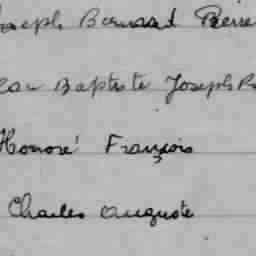 Joseph Bernard Pierre
Jean Baptiste Joseph
Honoré François
Charles Auguste